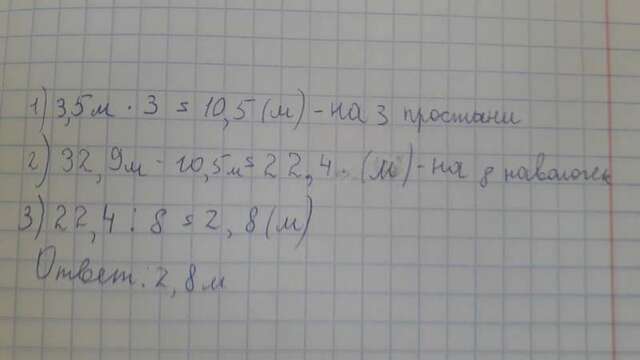 1) 3,5м · 3 = 10,5 (м) - на 3 простыни
2) 32,9м - 10,5м = 22,4 (м) - на 8 наволочек
3) 22,4 : 8 = 2,8 (м)
Ответ: 2,8 м